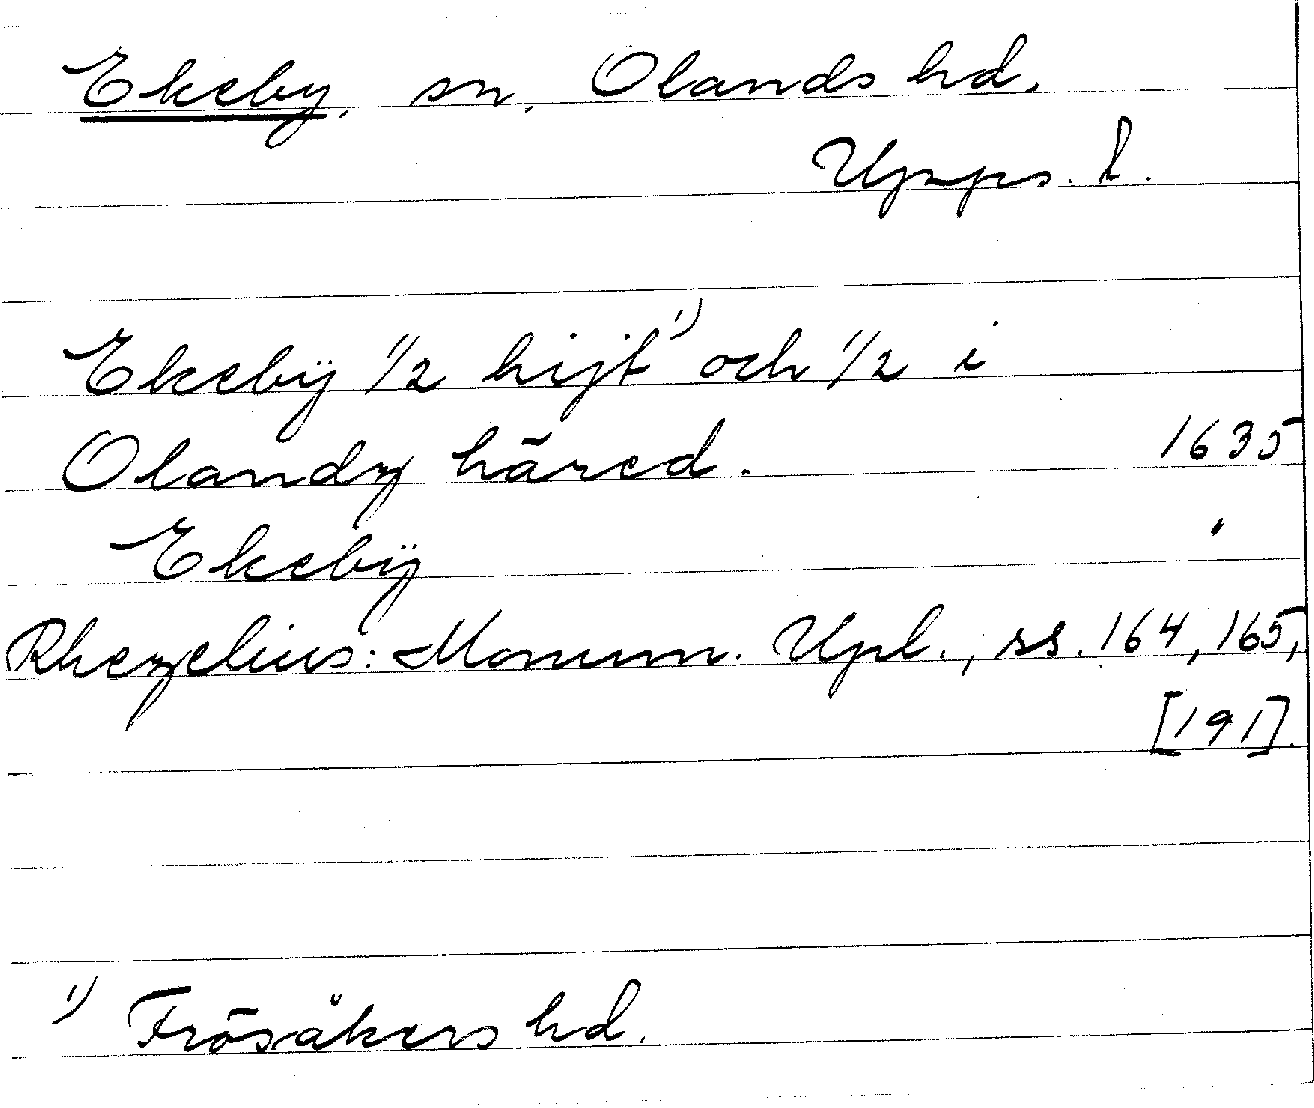 Ekeby, sn, Olands hd.
Upps. l.
Ekebÿ 1/2 hijt 1) och 1/2 i
Olandz häred. 1635
Ekebÿ "
Rhezelius: Monum. Upl., ss. 164, 165,
[191].
1) Frösåkers hd.